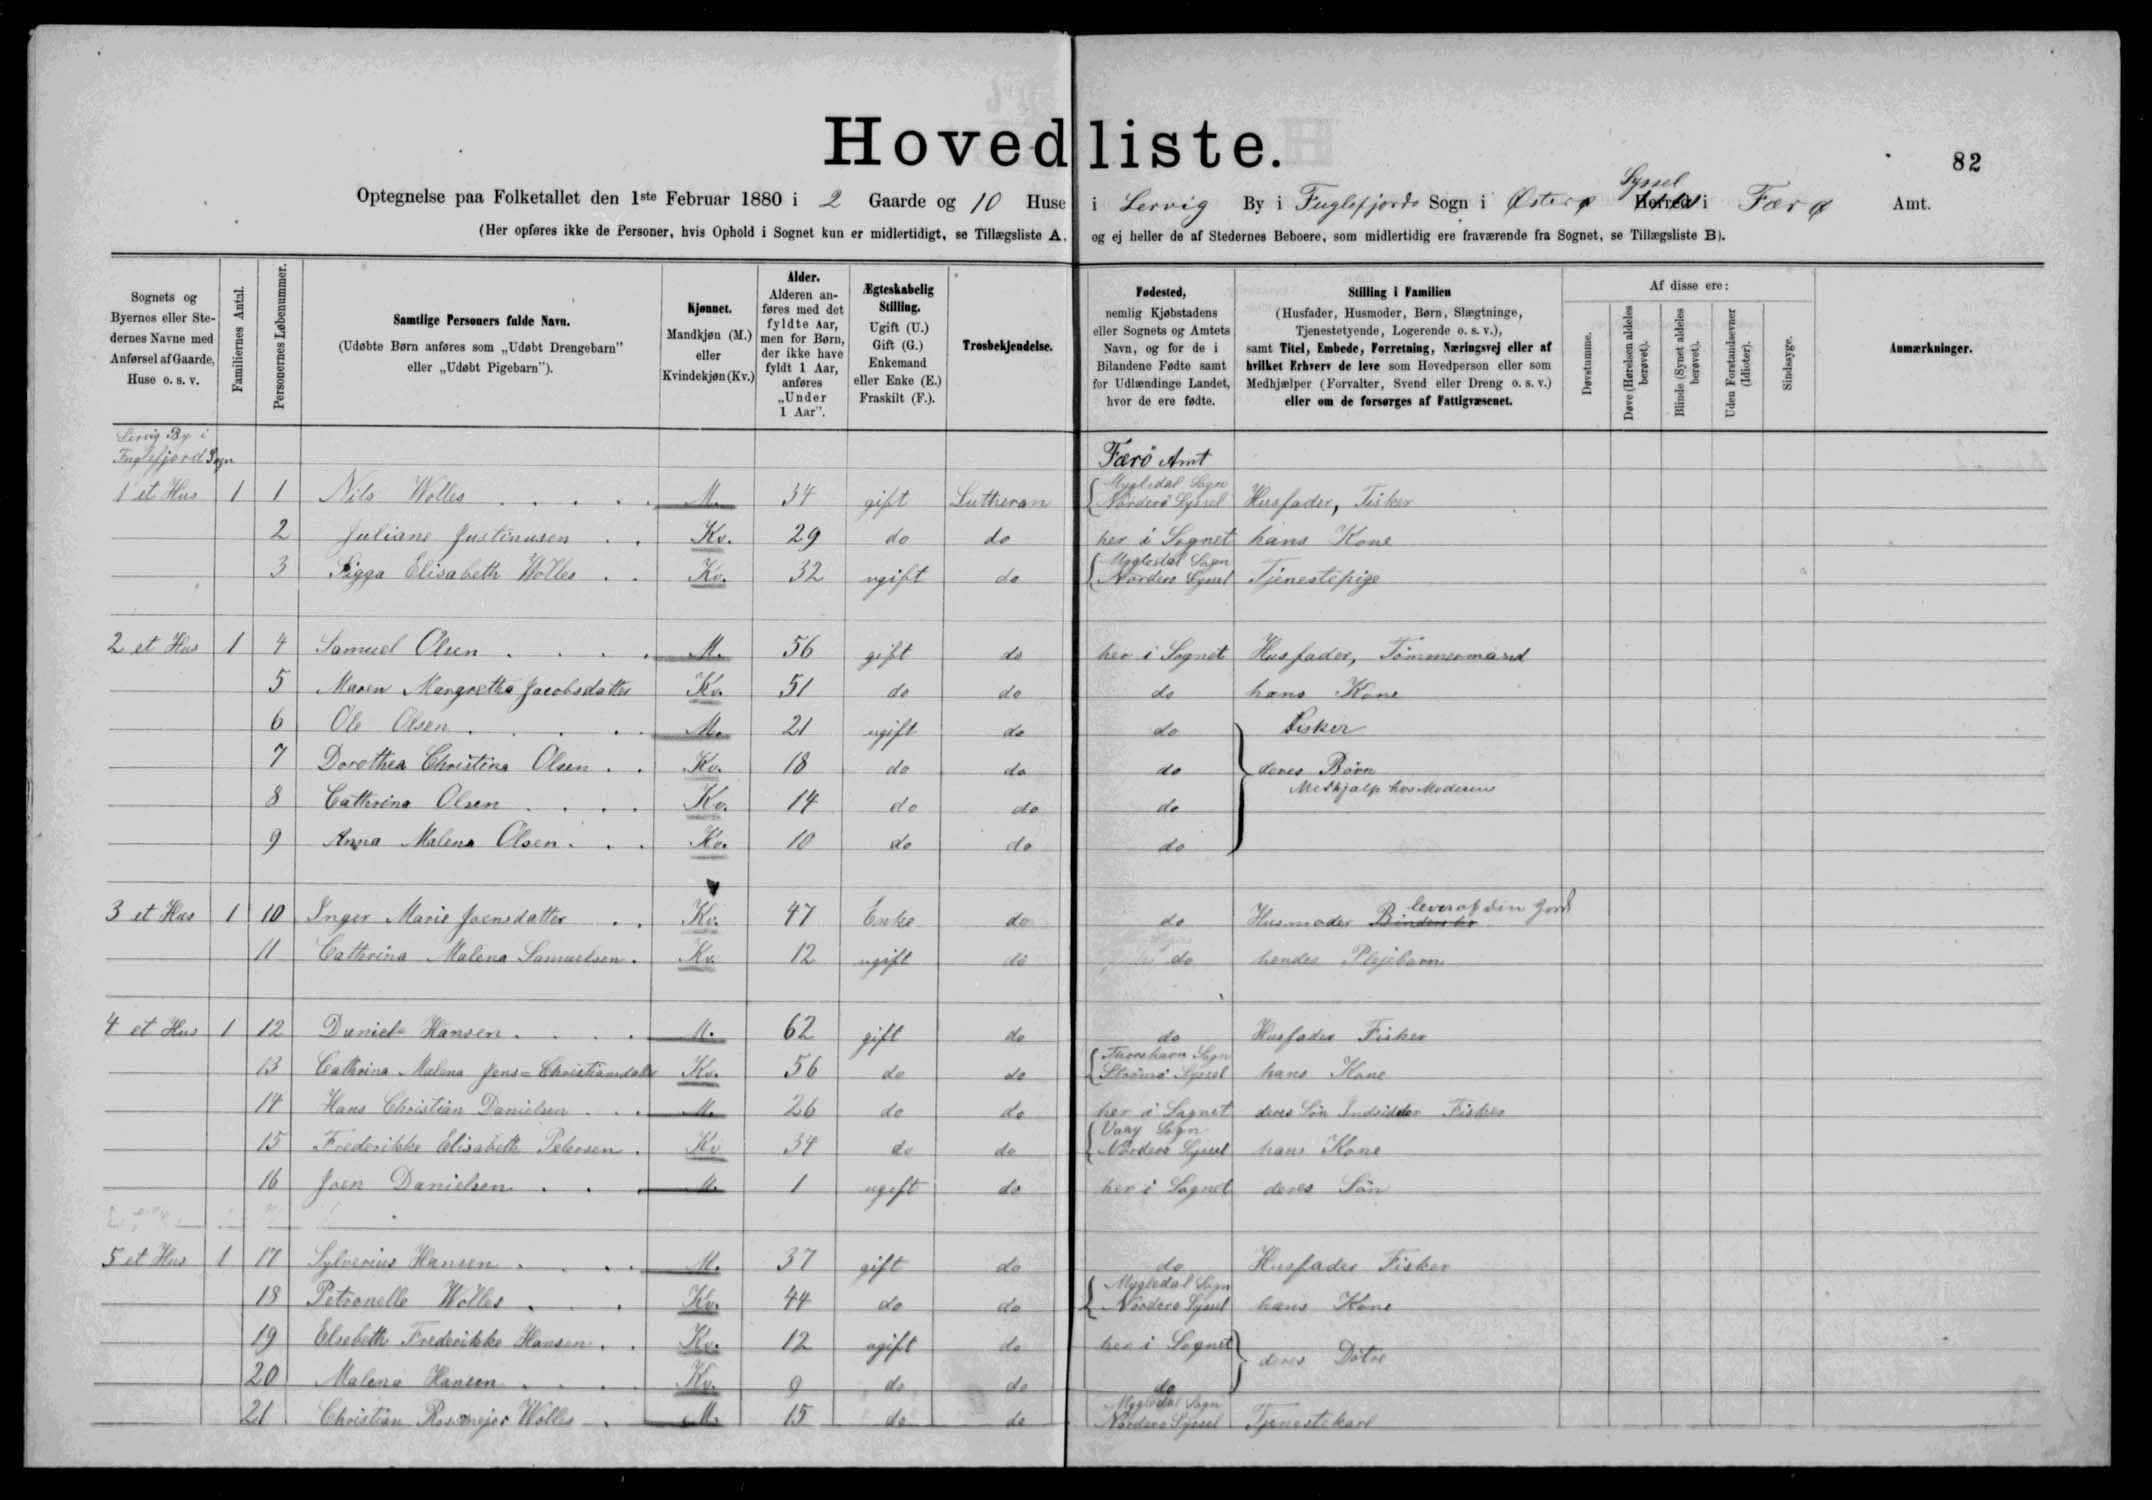 Hovedliste.
82
Optegnelse paa Folketallet den 1ste Februar 1880 i 2 Gaarde og 10 Huse i Lervig By i Fuglefjords Sogn i Østerø Syssel Herred i Færø Amt.
(Her opføres ikke de Personer, hvis Ophold i Sognet kun er midlertidigt, se Tillægsliste A, og ej heller de af Stedernes Beboere, som midlertidig ere fraværende fra Sognet, se Tillægsliste B).
Sognets og Byernes eller Stedernes Navne med Anførsel af Gaarde, Huse o. s. v.
Familiernes Antal.
Personernes Løbenummer.
Samtlige Personers fulde Navn.
(Udøbte Børn anføres som „Udøbt Drengebarn" eller „Udøbt Pigebarn").
Kjønnet.
Mandkjøn (M.) eller Kvindekjøn (Kv.)
Alder.
Alderen anføres med det fyldte Aar, men for Børn, der ikke have fyldt 1 Aar, anføres „Under 1 Aar".
Ægteskabelig Stilling.
Ugift (U.) Gift (G.) Enkemand eller Enke (E.) Fraskilt (F.).
Trosbekjendelse.
Fødested,
nemlig Kjøbstadens eller Sognets og Amtets Navn, og for de i Bilandene Fødte samt for Udlændinge Landet, hvor de ere fødte.
Stilling i Familien
(Husfader, Husmoder, Børn, Slægtninge, Tjenestetyende, Logerende o. s. v.),
samt Titel, Embede, Forretning, Næringsvej eller af hvilket Erhverv de leve som Hovedperson eller som Medhjælper (Forvalter, Svend eller Dreng o. s. v.) eller om de forsørges af Fattigvæsenet.
Af disse ere:
Døvstumme.
Døve (Hørelsen aldeles berøvet).
Blinde (Synet aldeles berøvet).
Uden Forstandsevner (Idioter).
Sindssyge.
Anmærkninger.
Lervig By i
Fuglefjord Sogn
Færö Amt
1 et Hus 1 1 Nils Wolles M. 34 gift Lutheran Mygledal Sogn Norderö Syssel Husfader, Fisker
2 Juliane Justinusen Kv. 29 do do her i Sognet hans Kone
3 Sigga Elisabeth Wolles Kv. 32 ugift do Mygledal Sogn Norderö Syssel Tjenestepige
2 et Hus 1 4 Samuel Olsen M. 56 gift do her i Sognet Husfader, Tömmermand
5 Maren Margretha Jacobsdatter Kv. 51 do do do hans Kone
6 Ole Olsen M. 21 ugift do do Fisker
7 Dorothea Christina Olsen Kv. 18 do do do deres Börn
8 Cathrina Olsen Kv. 14 do do do Medhjælp hos Moderen
9 Anna Malena Olsen Kv. 10 do do do
3 et Hus 1 10 Inger Marie Joensdatter Kv. 47 Enke do do Husmoder lever af sin Jord
11 Cathrina Malena Samuelsen Kv. 12 ugift do do hendes Plejebarn
4 et Hus 1 12 Daniel Hansen M. 62 gift do do Husfader Fisker
13 Cathrina Malena Jens=Christiansdatter Kv. 56 do do Thorshavn Sogn Strömö Syssel hans Kone
14 Hans Christian Danielsen M. 26 do do her i Sognet deres Sön Indsidder Fisker
15 Frederikke Elisabeth Petersen Kv 34 do do Vaay Sogn Norderö Syssel hans Kone
16 Joen Danielsen M. 1 ugift do her i Sognet deres Sön
5 et Hus 1 17 Sylverius Hansen M. 37 gift do do Husfader Fisker
18 Petronelle Wolles Kv. 44 do do Mygledal Sogn Norderö Syssel hans Kone
19 Elsebeth Frederikke Hansen Kv. 12 ugift do her i Sognet deres Dötre
20 Malena Hansen Kv. 9 do do do
21 Christian Rosemejer Wolles M. 15 do do Mygledal Sogn Norderö Syssel Tjenestekarl